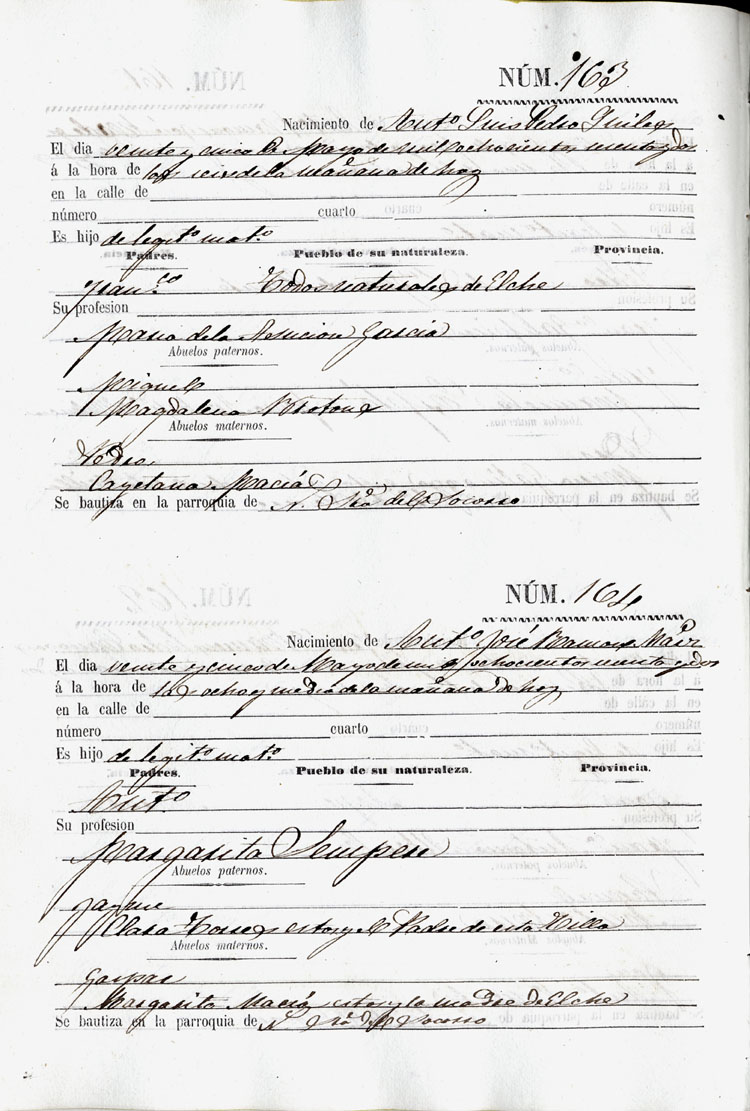 NÚM. 163
Nacimiento de Antº Luis Pedro
El dia veinte y cinco de Mayo de mil ochocientos
á la hora de las seis de la mañana de hoy
en la calle de
número cuarto
Es hijo de legitº matº
Padres. Pueblo de su naturaleza. Provincia.
Franco Todos naturales de Elche
Su profesion
Maria de la Asuncion Garcia
Abuelos paternos.
Miguel
Magdalena
Abuelos maternos.
Pedro
Cayetana Maciá
Se bautiza en la parroquia de N. Sra del Socorro
NÚM. 164
Nacimiento de Antº José Ramon
El dia veinte y cinco de Mayo de mil ochocientos
á la hora de las ocho y media de la mañana de hoy
en la calle de
número cuarto
Es hijo de legitº matº
Padres. Pueblo de su naturaleza. Provincia.
Antº
Su profesion
Margarita Sempere
Abuelos paternos.
Jayme
Clara Torres estos y el Padre de esta Villa
Abuelos maternos.
Gaspar
Margarita Maciá estos y la madre de Elche
Se bautiza en la parroquia de N Sra del Socorro